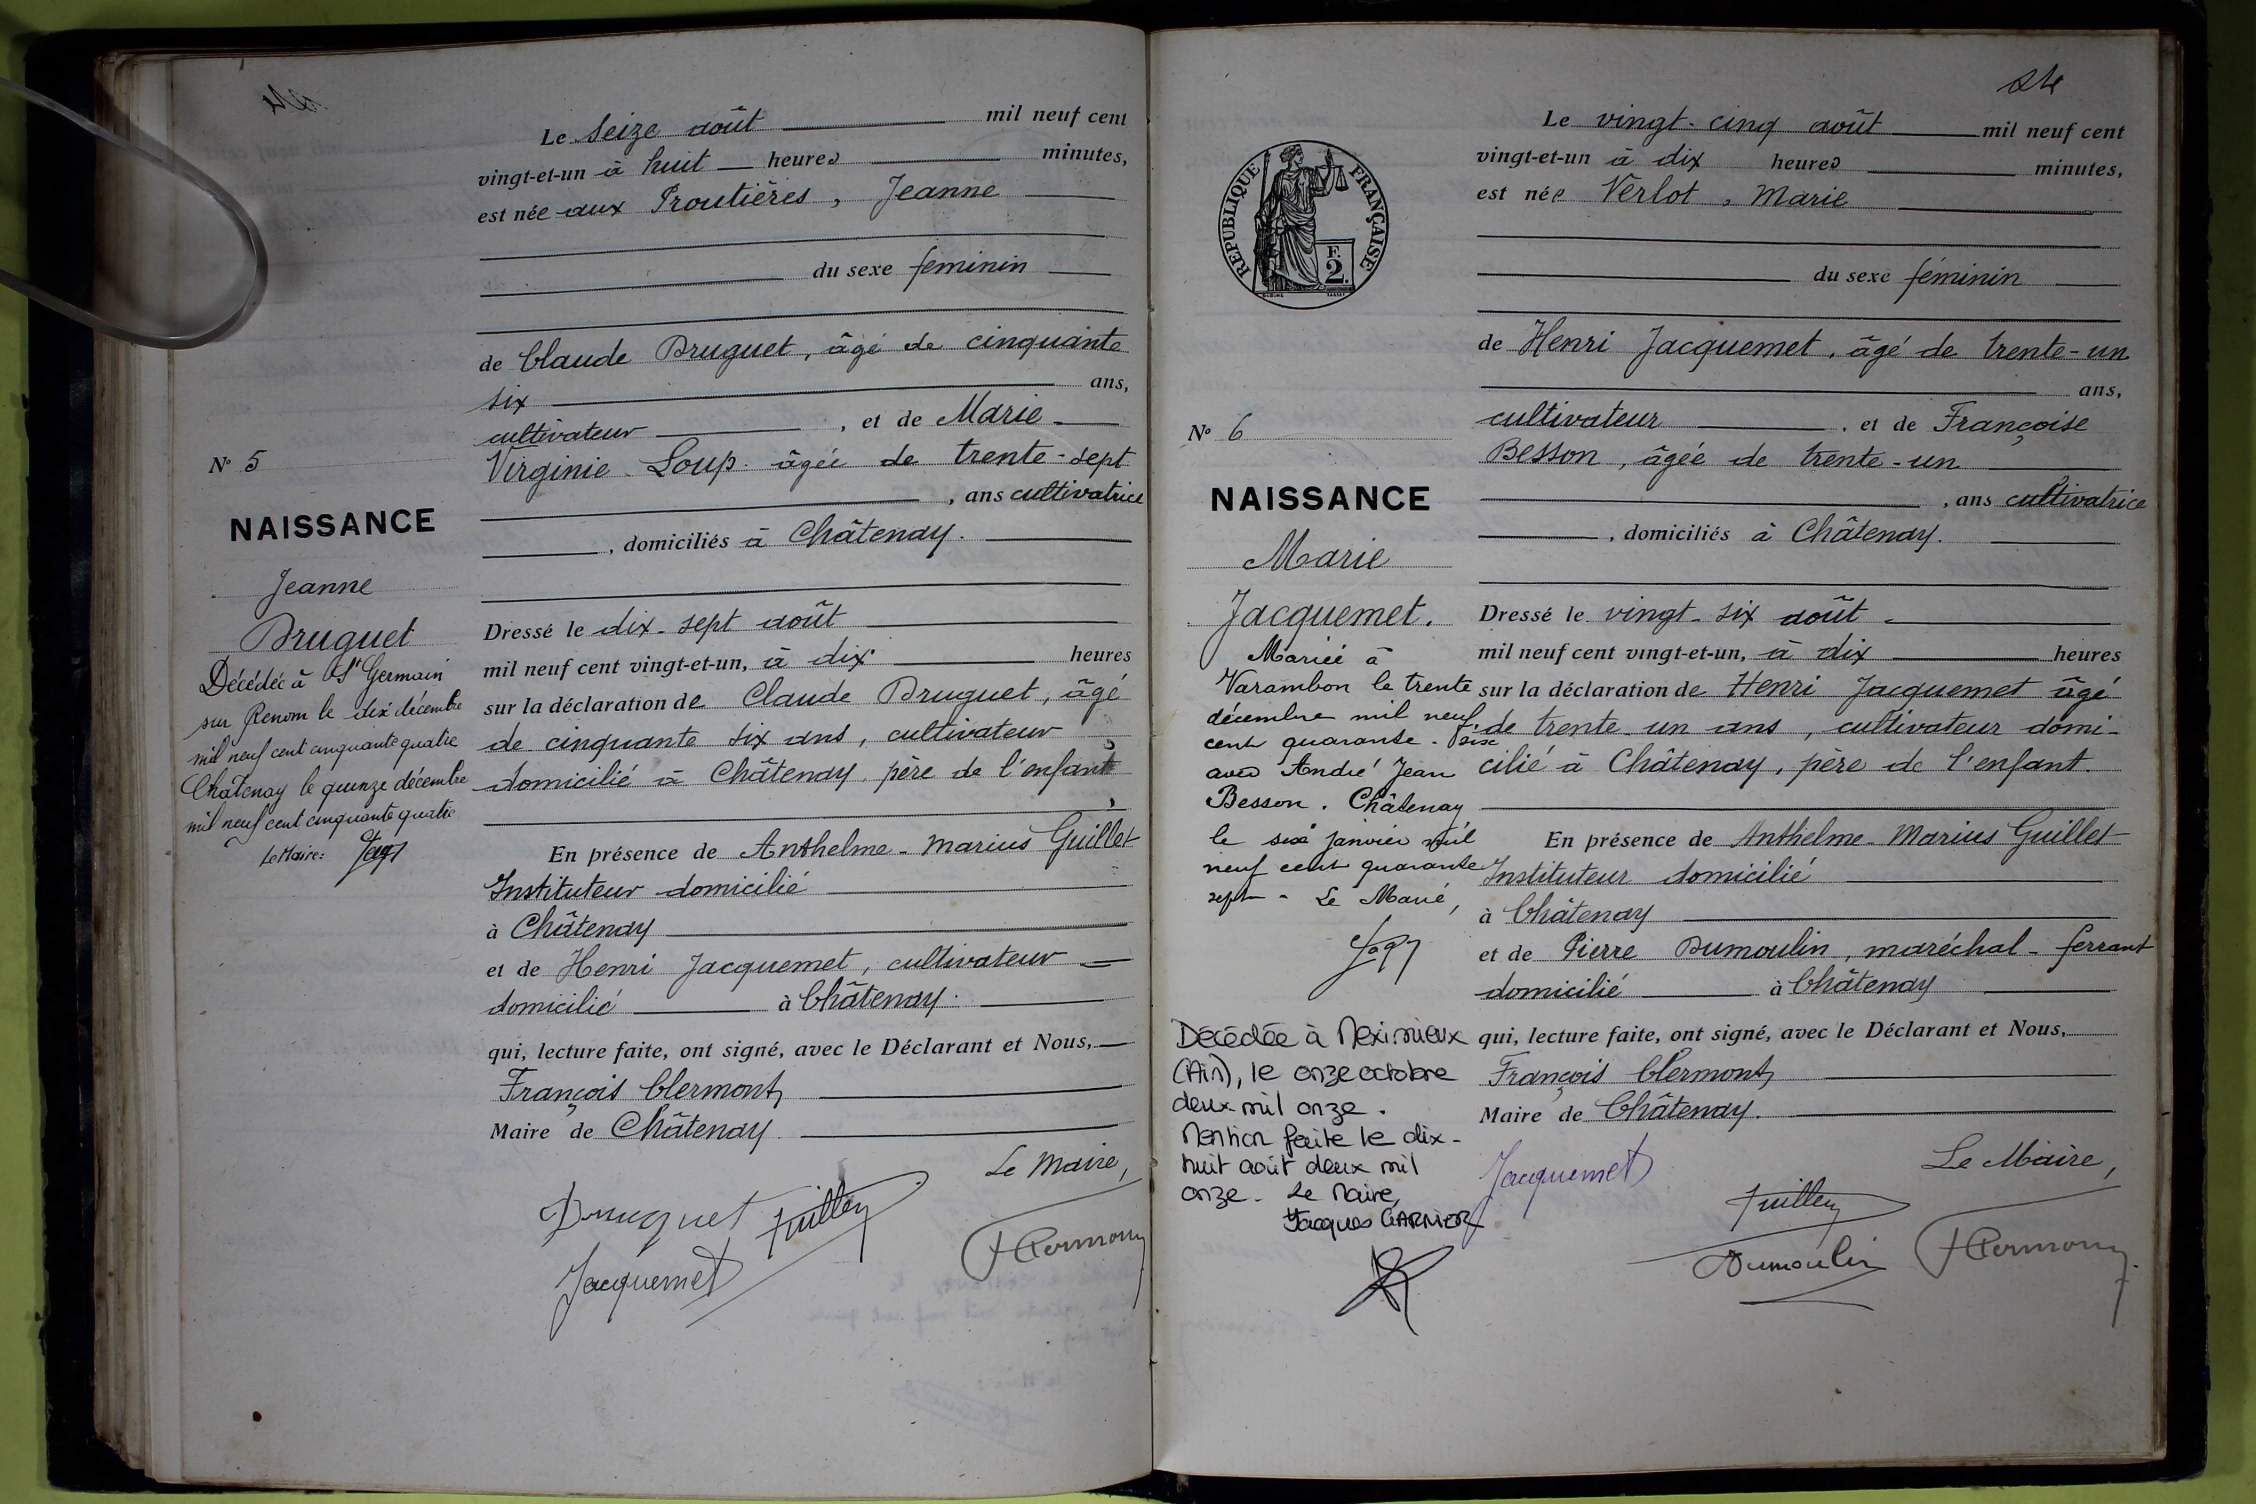 Le seize août mil neuf cent
vingt-et-un à huit heures minutes,
est née aux Proutières, Jeanne
du sexe féminin
de Claude Bruguet, âgé de cinquante
six ans,
cultivateur, et de Marie
Virginie Loup âgée de trente-sept
, ans cultivatrice
, domiciliés à Châtenay.
Dressé le dix-sept août
mil neuf cent vingt-et-un, à dix heures
sur la déclaration de Claude Bruguet, âgé
de cinquante six ans, cultivateur
domicilié à Châtenay père de l'enfant
,
En présence de Anthelme-Marius Guillet
Instituteur domicilié
à Châtenay
et de Henri Jacquemet, cultivateur
domicilié à Châtenay.
qui, lecture faite, ont signé, avec le Déclarant et Nous,
François Clermont
Maire de Châtenay
Le Maire,
Bruguet Guillet
Jacquemet FClermont
N° 5
NAISSANCE
Jeanne
Bruguet
Décédée à St Germain
sur Renom le dix décembre
mil neuf cent cinquante quatre
Châtenay le quinze décembre
mil neuf cent cinquante quatre
Le Maire:
24
Le vingt-cinq août mil neuf cent
vingt-et-un à dix heures minutes,
est née Verlot, Marie
du sexe féminin
de Henri Jacquemet, âgé de trente-un
ans,
cultivateur, et de Françoise
Besson, âgée de trente-un
, ans cultivatrice
, domiciliés à Châtenay.
Dressé le vingt-six août
mil neuf cent vingt-et-un, à dix heures
sur la déclaration de Henri Jacquemet âgé
de trente-un ans, cultivateur domi-
cilié à Châtenay, père de l'enfant.
En présence de Anthelme-Marius Guillet
Instituteur domicilié
à Châtenay
et de Pierre Dumoulin, maréchal-ferrant
domicilié à Châtenay
qui, lecture faite, ont signé, avec le Déclarant et Nous,
François Clermont
Maire de Châtenay.
Le Maire,
Jacquemet
Guillet
Dumoulin FClermont
RÉPUBLIQUE FRANÇAISE
F.
2.
N° 6
NAISSANCE
Marie
Jacquemet.
Mariée à
Varambon le trente
décembre mil neuf
cent quarante-six
avec André Jean
Besson. Châtenay
le six janvier mil
neuf cent quarante
sept - Le Maire,
Décédée à Meximieux
(Ain), le onze octobre
deux mil onze.
Mention faite le dix-
huit août deux mil
onze. Le Maire,
Jacques GARNIER